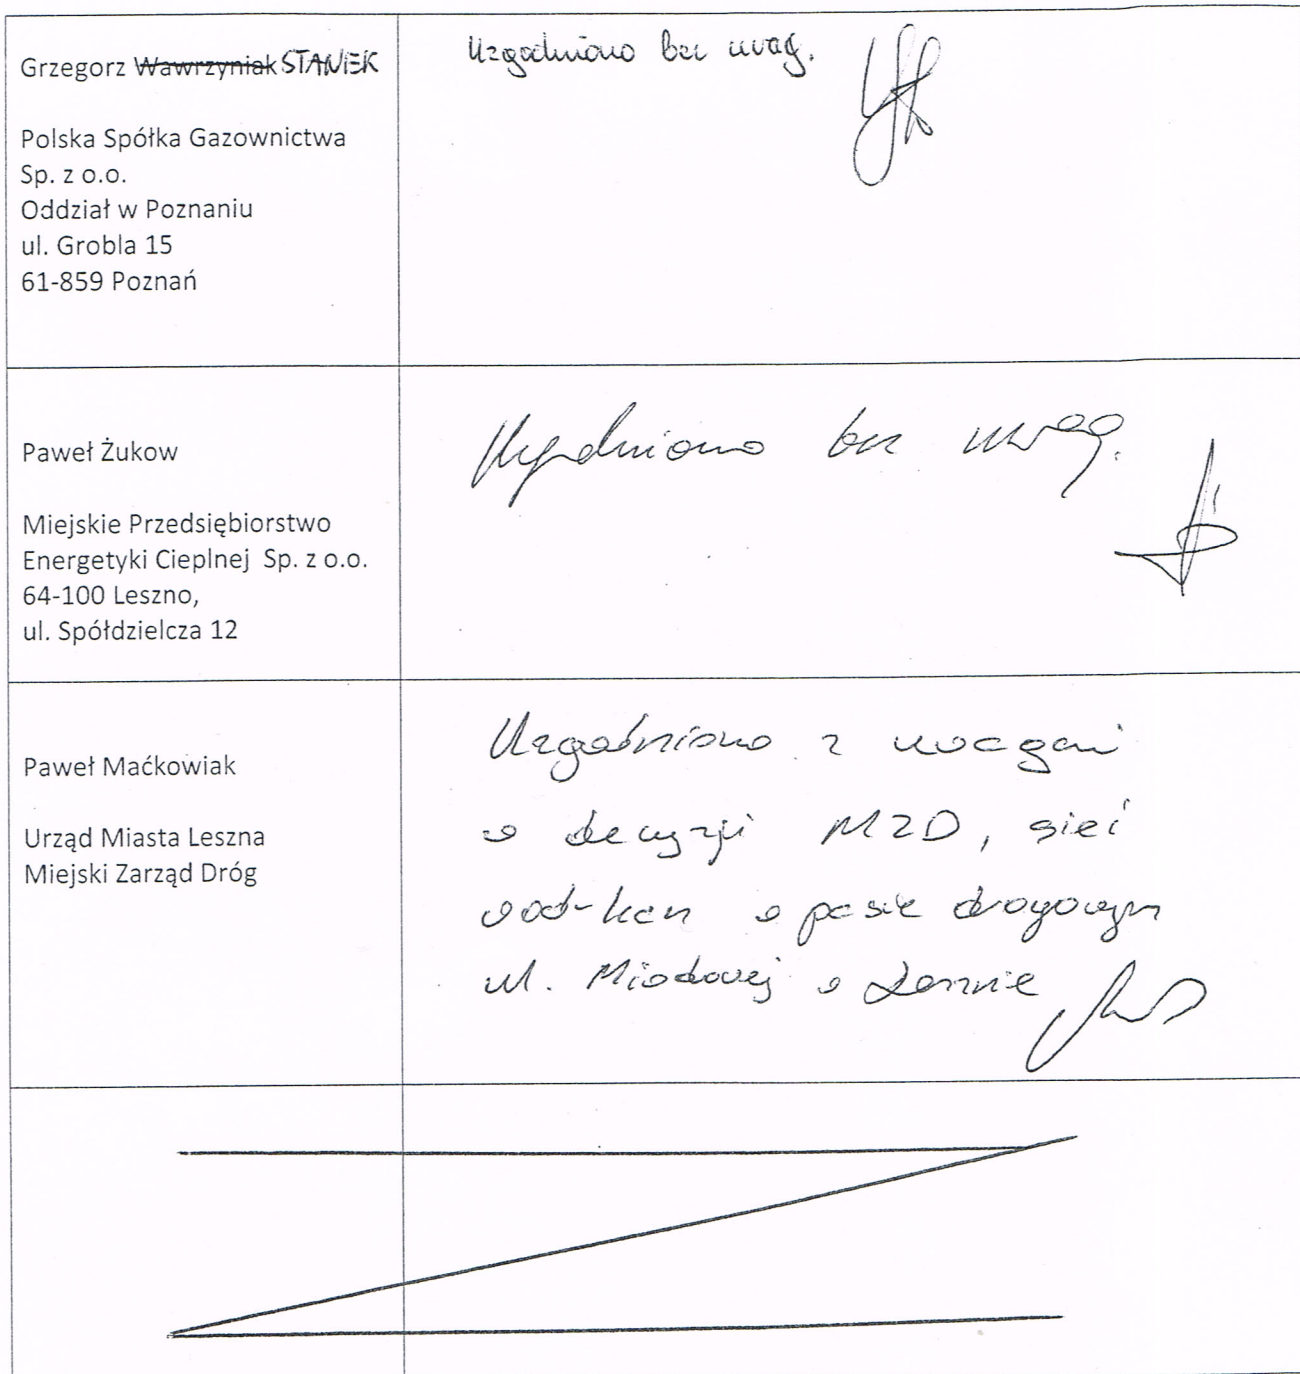 Grzegorz Wawrzyniak STANEK
Uzgodniono bez uwag.
Polska Spółka Gazownictwa
Sp. z o.o.
Oddział w Poznaniu
ul. Grobla 15
61-859 Poznań
Paweł Żukow
Uzgodniono bez uwag.
Miejskie Przedsiębiorstwo
Energetyki Cieplnej Sp. z o.o.
64-100 Leszno,
ul. Spółdzielcza 12
Paweł Maćkowiak
Urząd Miasta Leszna
Miejski Zarząd Dróg
Uzgodniono z uwagami
w decyzji MZD, sieć
wod-kan w pasie drogowym
ul. Miodowej w